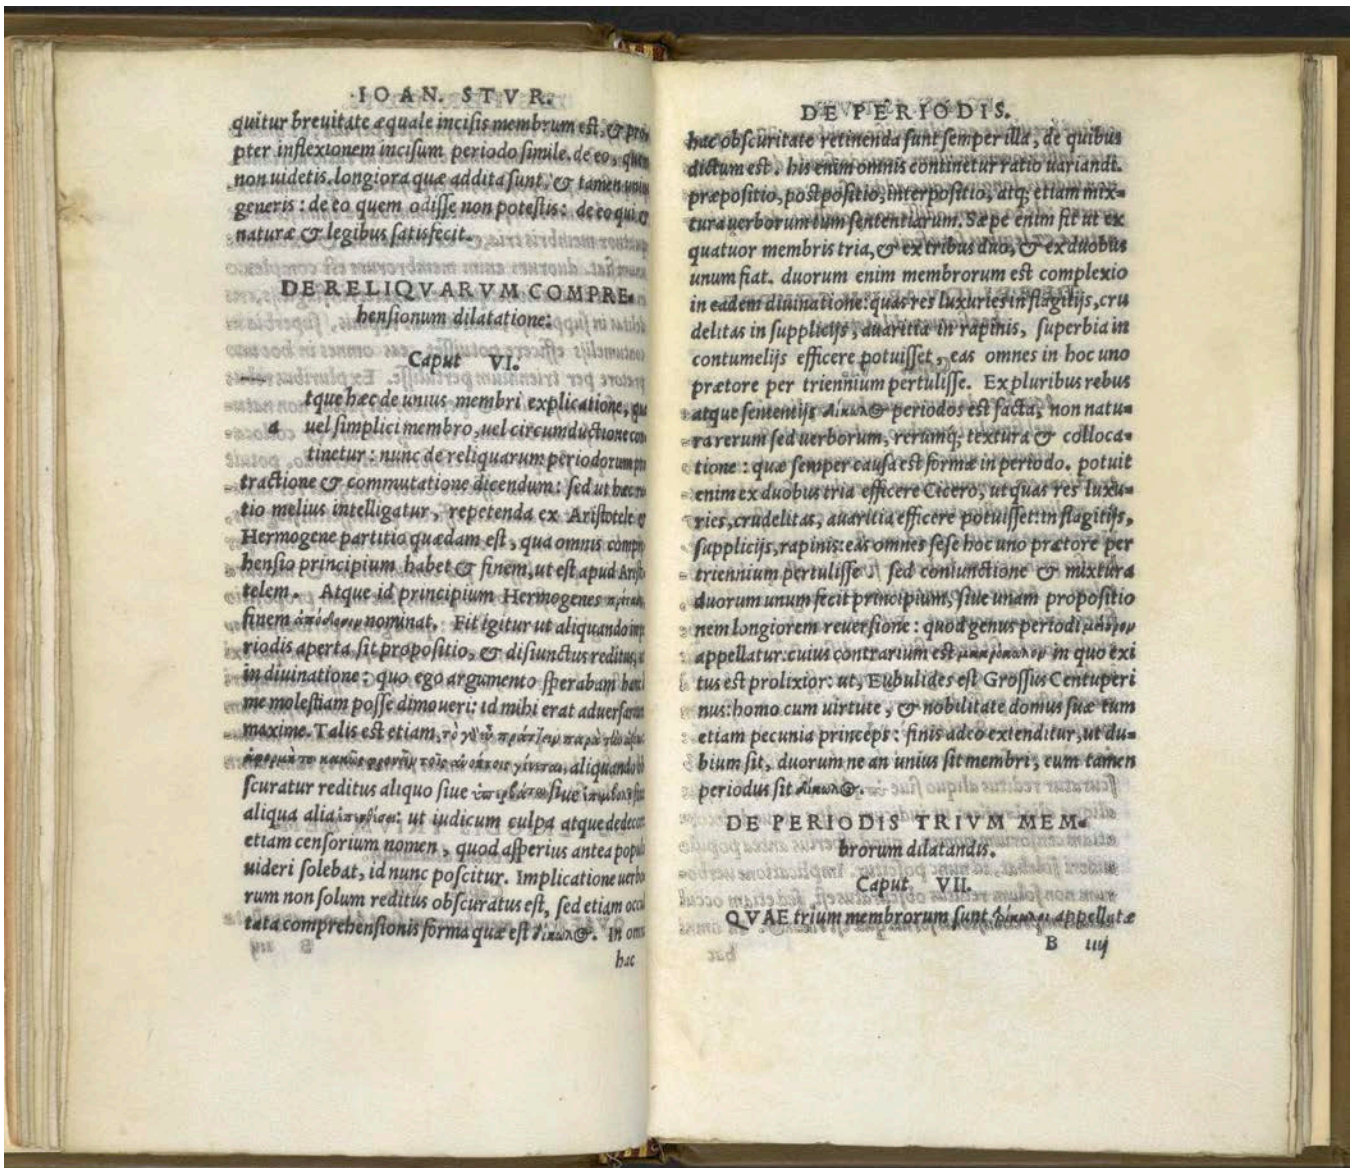 IOAN. STVR.
quitur breuitate æquale incisis membrum est, & pro
pter inflexionem incisum periodo simile. de eo, quem
non uidetis. longiora quæ addita sunt, & tamen unius
generis: de eo quem odisse non potestis: de eo qui &
naturæ & legibus satisfecit.
DE RELIQVARVM COMPRE-
hensionum dilatatione:
Caput VI.
tque hæc de unius membri explicatione, quæ
a uel simplici membro, uel circumductione con
tinetur: nunc de reliquarum periodorum
tractione & commutatione dicendum: sed ut hæc ra
tio melius intelligatur, repetenda ex Aristotele &
Hermogene partitio quædam est, qua omnis compre
hensio principium habet & finem, ut est apud Aristo
telem. Atque id principium Hermogenes
finem ἀπόδοσιν nominat. Fit igitur ut aliquando in pe
riodis aperta sit propositio, & disiunctus reditus, ut
in diuinatione: quo ego argumento sperabam hanc
me molestiam posse dimoueri: id mihi erat aduersarium
maxime. Talis est etiam, τὸ γὰρ εὖ πράττειν παρὰ τὴν ἀξίαν
ἀφορμὴ τοῦ κακῶς φρονεῖν τοῖς ἀνοήτοις γίνεται, aliquando ob
scuratur reditus aliquo siue ὑπερβάτῳ siue
aliqua alia ut iudicum culpa atque dedecore
etiam censorium nomen, quod asperius antea populo
uideri solebat, id nunc poscitur. Implicatione uerbo
rum non solum reditus obscuratus est, sed etiam occul
tata comprehensionis forma quæ est δίκωλος. In omni
hac
DE PERIODIS.
hac obscuritate retinenda sunt semper illa, de quibus
dictum est. his enim omnis continetur ratio uariandi.
præpositio, postpositio, interpositio, atq; etiam mix-
tura uerborum tum sententiarum. Sæpe enim fit ut ex
quatuor membris tria, & ex tribus duo, & ex duobus
unum fiat. duorum enim membrorum est complexio
in eadem diuinatione: quas res luxuries in flagitijs, cru
delitas in supplicijs, auaritia in rapinis, superbia in
contumelijs efficere potuisset, eas omnes in hoc uno
prætore per triennium pertulisse. Ex pluribus rebus
atque sententijs δίκωλος periodos est facta, non natu-
ra rerum sed uerborum, rerumq; textura & colloca-
tione: quæ semper causa est formæ in periodo. potuit
enim ex duobus tria efficere Cicero, ut quas res luxu-
ries, crudelitas, auaritia efficere potuisset: in flagitijs,
supplicijs, rapinis: eas omnes sese hoc uno prætore per
triennium pertulisse. sed coniunctione & mixtura
duorum unum fecit principium, siue unam propositio
nem longiorem reuersione: quod genus periodi
appellatur. cuius contrarium est μακρόκωλον in quo exi
tus est prolixior: ut, Eubulides est Grossus Centuperi
nus: homo cum uirtute, & nobilitate domus suæ tum
etiam pecunia princeps: finis adeo extenditur, ut du-
bium sit, duorum ne an unius sit membri, cum tamen
periodus sit δίκωλος.
DE PERIODIS TRIVM MEM-
brorum dilatandis.
Caput VII.
QVAE trium membrorum sunt τρίκωλοι appellatæ
B iiij